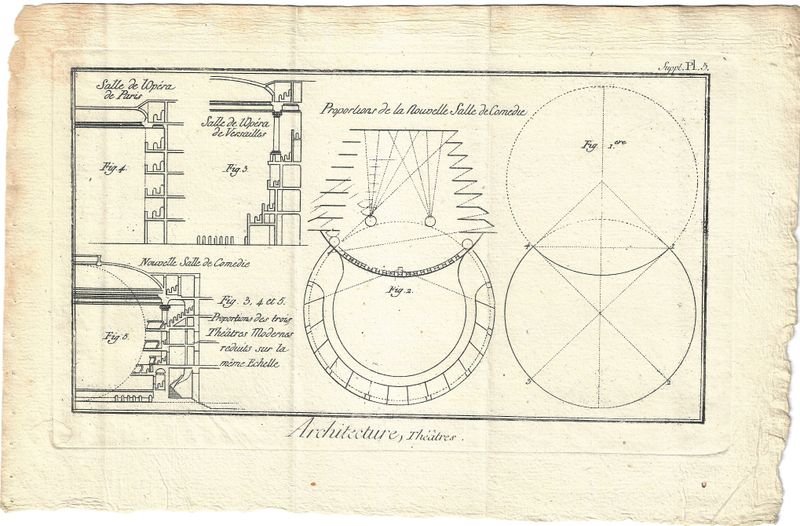 Suppl. Pl. 5.
Salle de l'Opéra
de Paris
Salle de l'Opéra
de Versailles
Proportions de la Nouvelle Salle de Comedie
Fig. 1.ere
Fig. 4.
Fig. 3.
4
1
Nouvelle Salle de Comedie
Fig. 2.
Fig. 3, 4 et 5.
Proportions des trois
Théâtres Modernes
reduits sur la
même Echelle
Fig. 5.
3
2
Architecture, Théâtres.